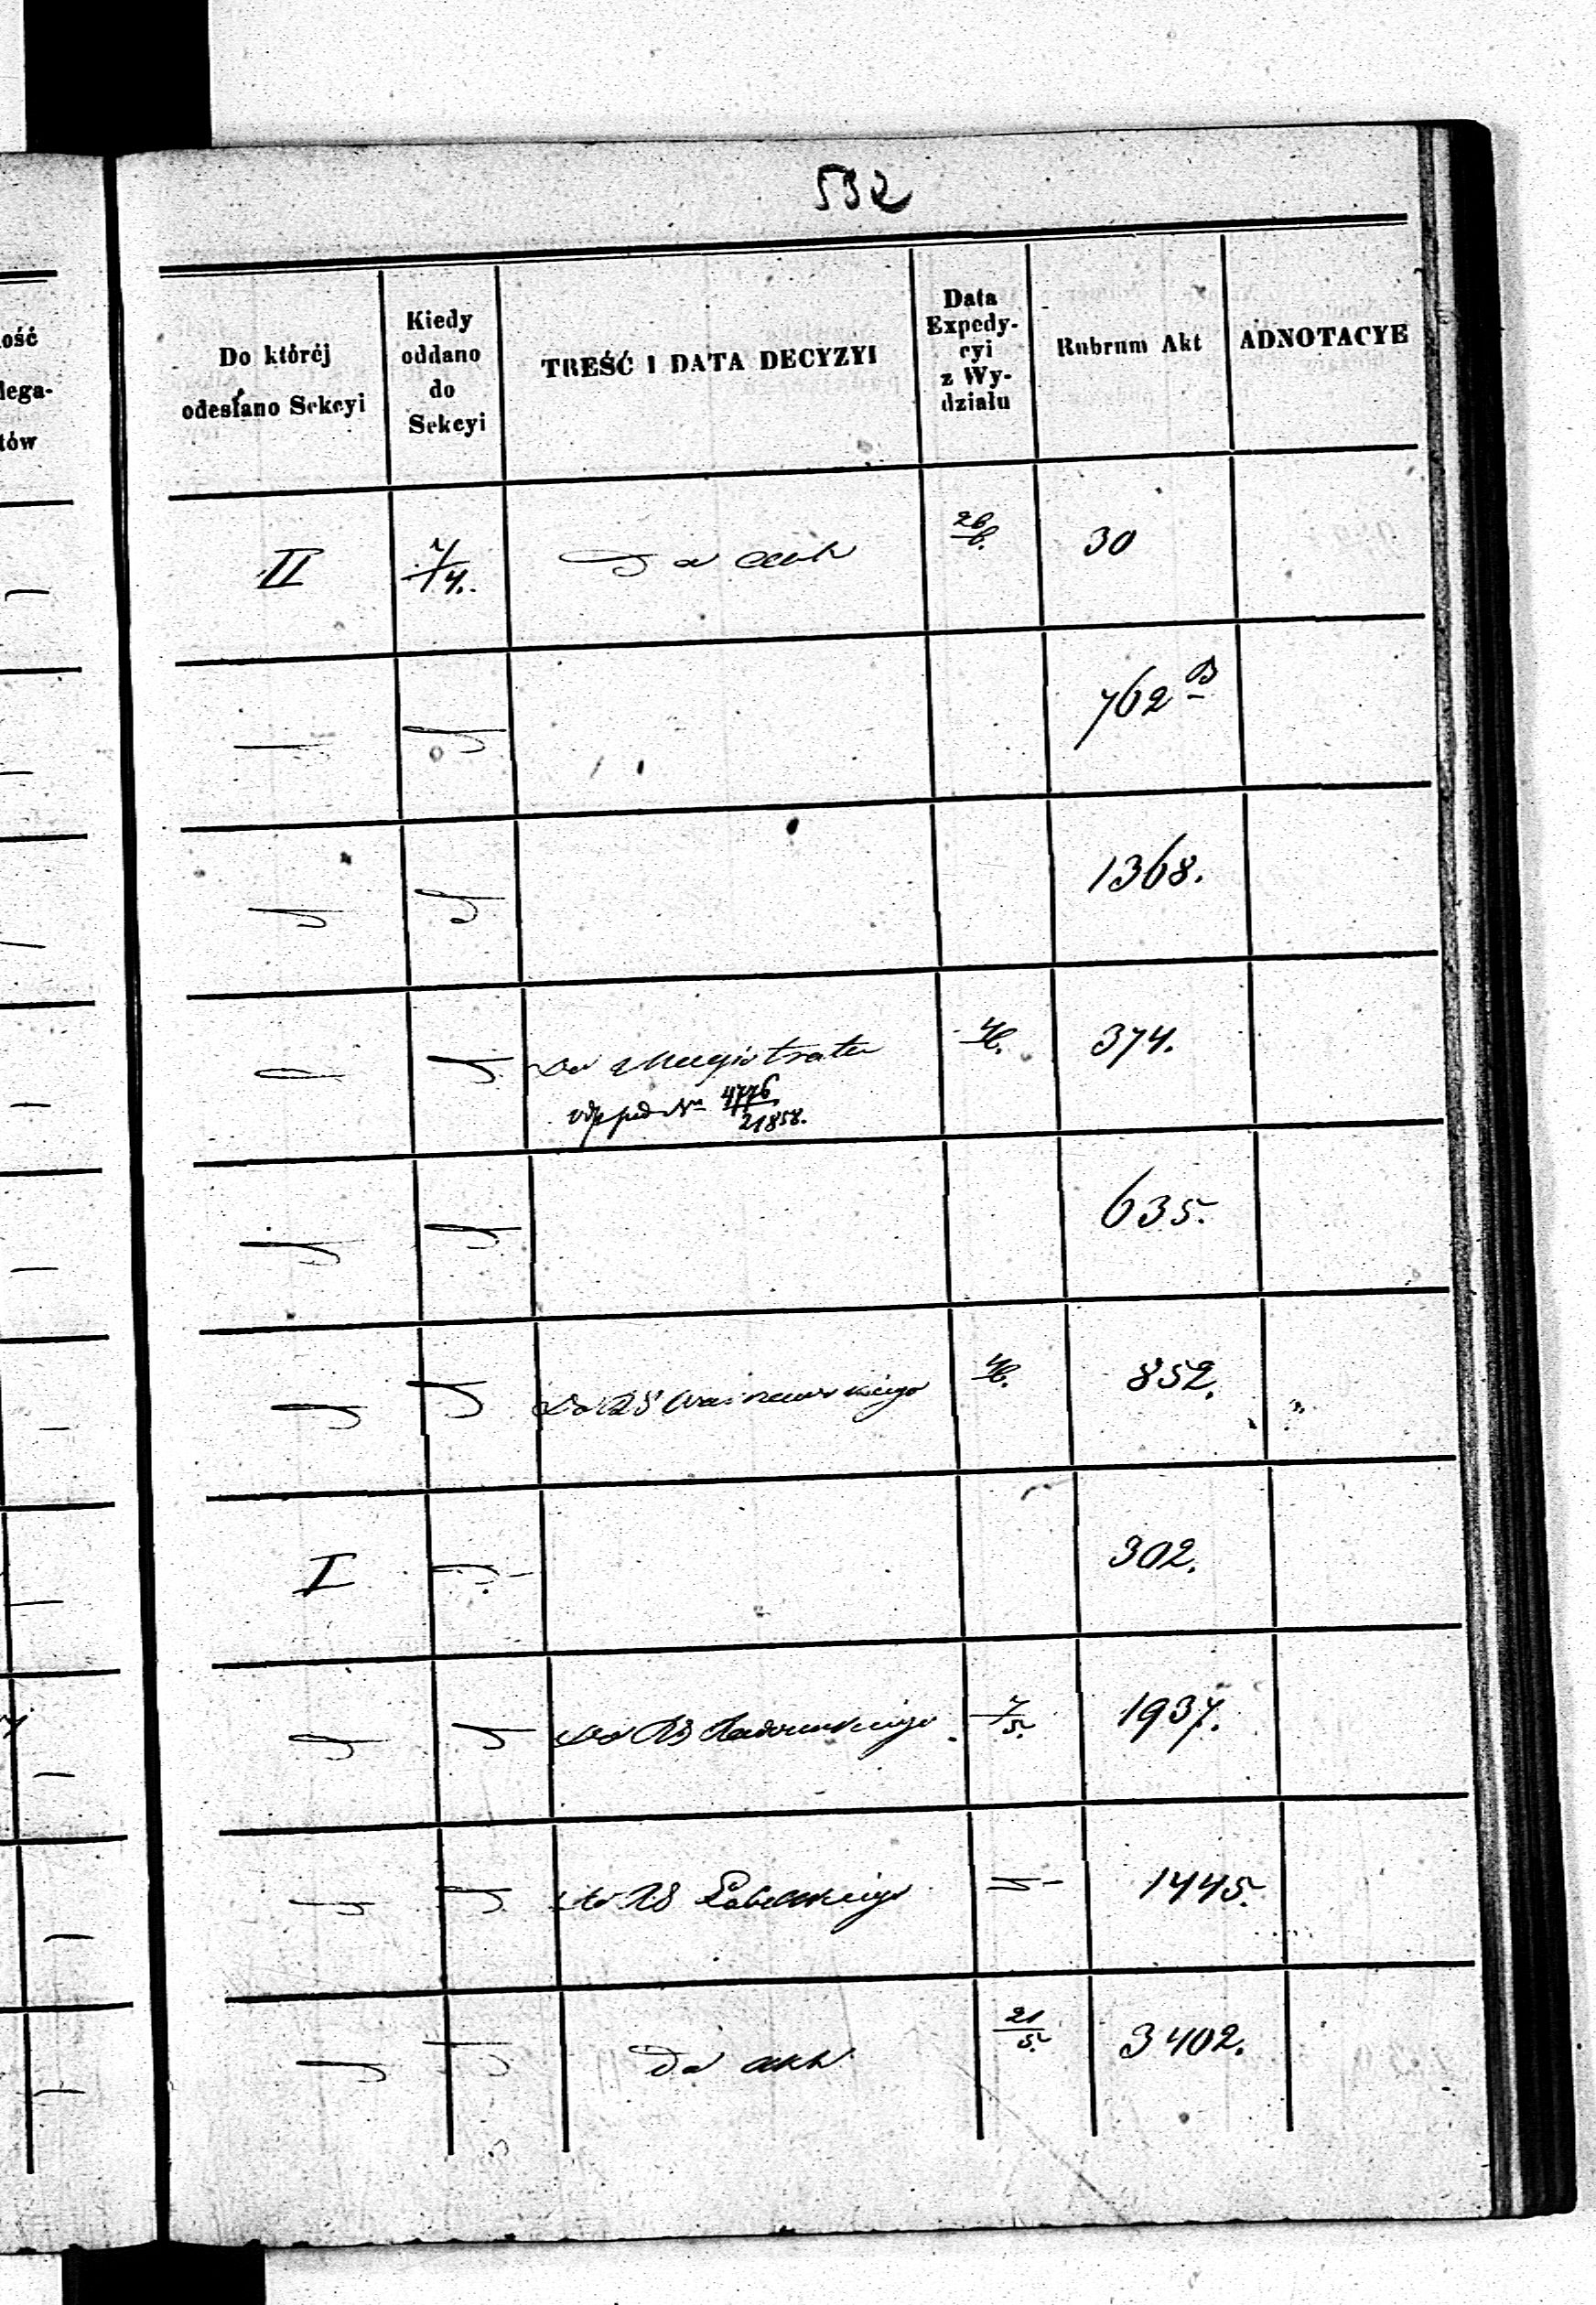 532
ość
lega-
tów
Do któréj
odesłano Sekcyi
Kiedy
oddano
do
Sekcyi
TREŚĆ I DATA DECYZYI
Data
Expedy-
cyi
z Wy-
działu
Rubrum Akt
ADNOTACYE
II
Da akt
30
762 B
1368.
Do Magistratu
374.
4776
21858.
635.
852.
I
302.
7/5
1937.
1445.
Da akt
21/5
3402.